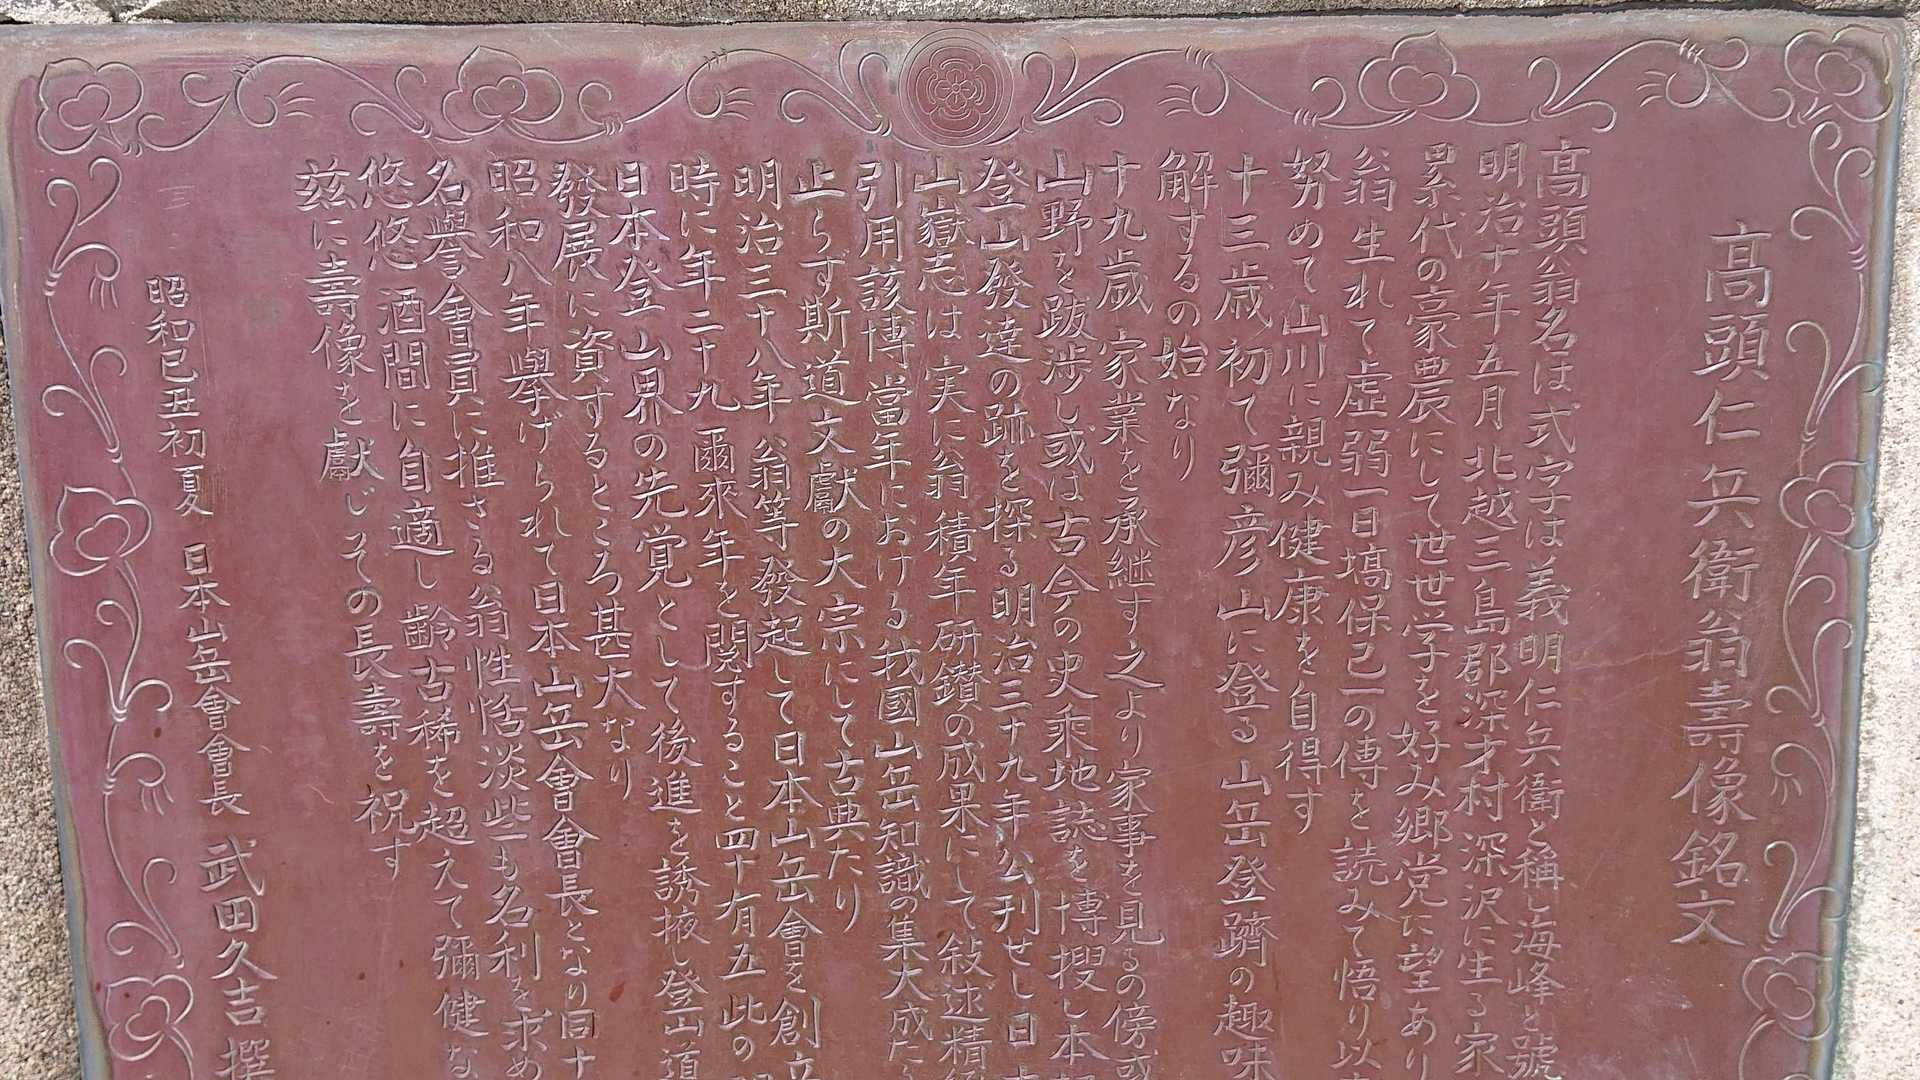 高頭仁兵衛翁壽像銘文
高頭翁名は式字は義明仁兵衛と稱し海峰と號
明治十年五月北越三島郡深才村深沢に生る家
累代の豪農にして世世学を好み郷党に望あり
翁生れて虚弱一日塙保己一の傳を読みて悟り以
努めて山川に親み健康を自得す
十三歳初て彌彦山に登る山岳登躋の趣味
解するの始なり
十九歳家業を承継す之より家事を見るの傍或
山野を跋渉し或は古今の史乘地誌を博搜し本
登山發達の跡を探る明治三十九年公刊せし日
山嶽志は実に翁積年研鑽の成果にして敍述精
引用該博當年における我國山岳知識の集大成た
止らず斯道文獻の大宗にして古典たり
明治三十八年翁等發起して日本山岳會を創立
時に年二十九爾來年を閲すること四十有五此の
日本登山界の先覚として後進を誘掖し登山道
發展に資するところ甚大なり
昭和八年擧げられて日本山岳會會長となり同十
名譽會員に推さる翁性恬淡些も名利を求め
悠悠酒間に自適し齢古稀を超えて彌健な
茲に壽像を獻じその長壽を祝す
昭和己丑初夏 日本山岳會會長 武田久吉 撰